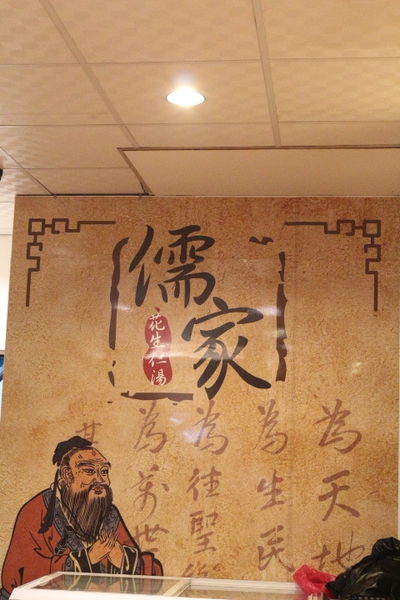 儒家
花生仁湯
為天地
為生民
為往聖繼
為萬世
其